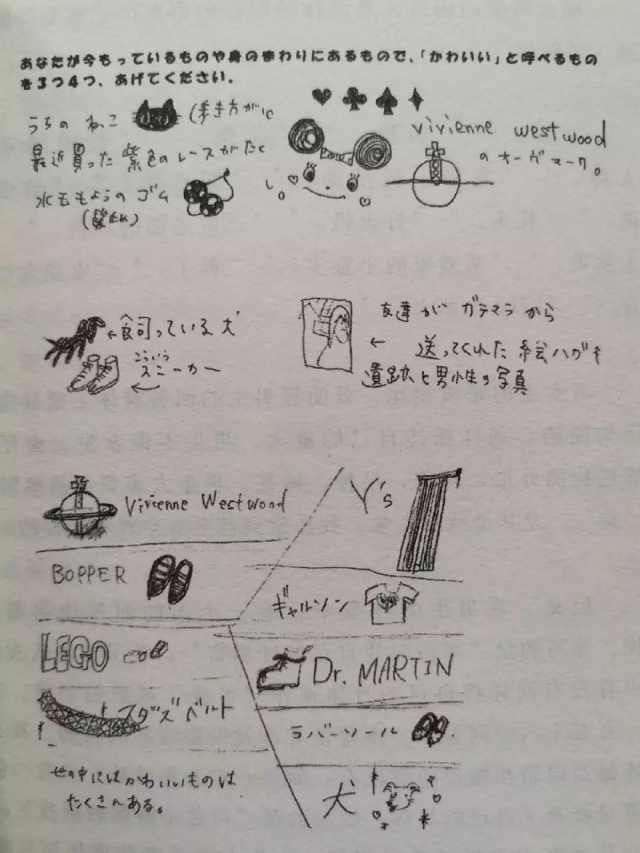 あなたが今もっているものや身のまわりにあるもので、「かわいい」と呼べるもの
を3つ4つ、あげてください。
うちの ねこ
最近買った 紫色の レースがたく
水玉もようの ゴム
vivienne westwood
の オーヴ マーク。
←飼っている 犬
こういう
スニーカー
友達が ガテマラ から
← 送ってくれた 絵ハガキ
遺跡と男性の写真
Vivienne Westwood
Y's
BOPPER
ギャルソン
LEGO
Dr. MARTIN
スタッズ ベルト
ラバーソール
世の中にはかわいいものは
たくさんある。
犬